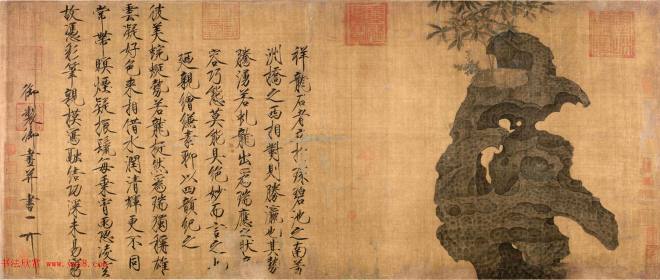 祥龍石者立於環碧池之南芳
洲橋之西相對則勝瀛也其勢
騰湧若虬龍出為瑞應之狀奇
容巧態莫能具絕妙而言之也
廼親繪縑素聊以四韻紀之
彼美蜿蜒勢若龍挺然為瑞獨稱雄
雲凝好色來相借水潤清輝更不同
常帶暝煙疑振鬣每乘宵雨恐凌空
故憑彩筆親模寫融結功深未易窮
御製御畫并書
书法欣赏